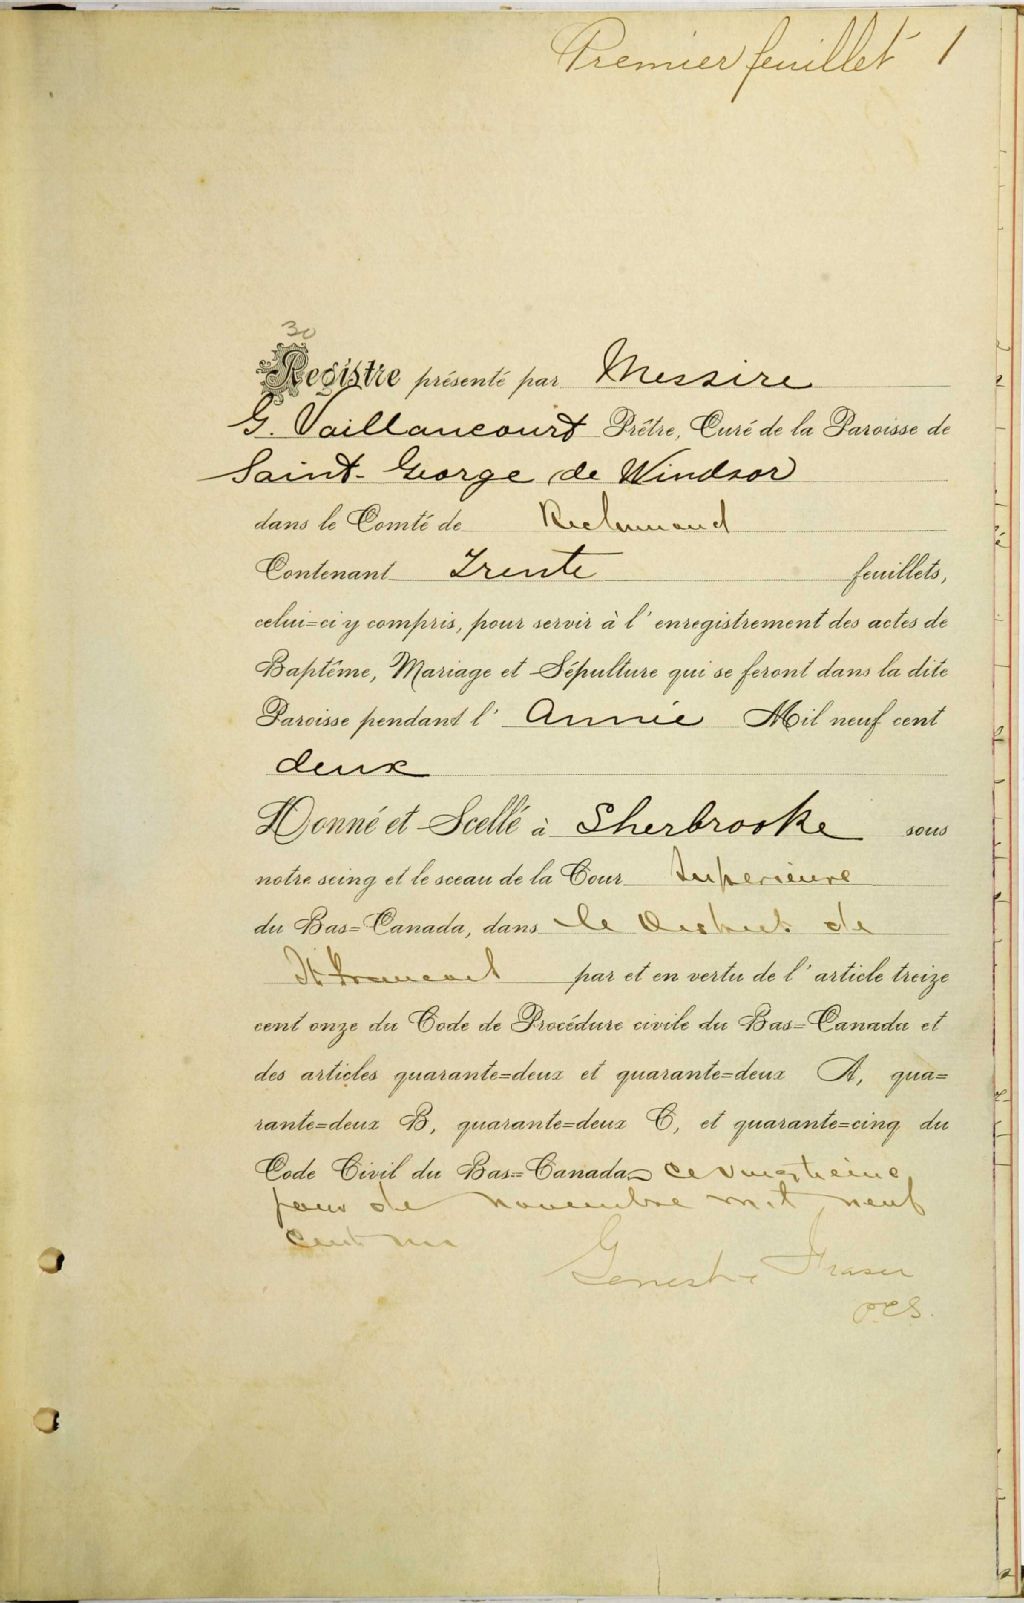 Premier feuillet 1
30
Registre présenté par Messire
G. Vaillancourt Prêtre, Curé de la Paroisse de
Saint-George de Windsor
dans le Comté de Richmond
Contenant Trente feuillets,
celui=ci y compris, pour servir à l'enregistrement des actes de
Baptême, Mariage et Sépulture qui se feront dans la dite
Paroisse pendant l'Année Mil neuf cent
deux
Donné et Scellé à Sherbrooke sous
notre seing et le sceau de la Cour Superieure
du Bas=Canada, dans le District de
St Francois par et en vertu de l'article treize
cent onze du Code de Procédure civile du Bas=Canada et
des articles quarante=deux et quarante=deux A, qua=
rante=deux B, quarante=deux C, et quarante=cinq du
Code Civil du Bas=Canada ce
jour de novembre mil neuf
cent un
Genest & Fraser
P.C.S.